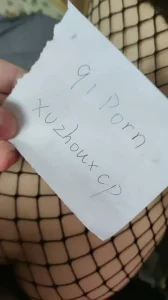 91 Porn
xuzhouxcp